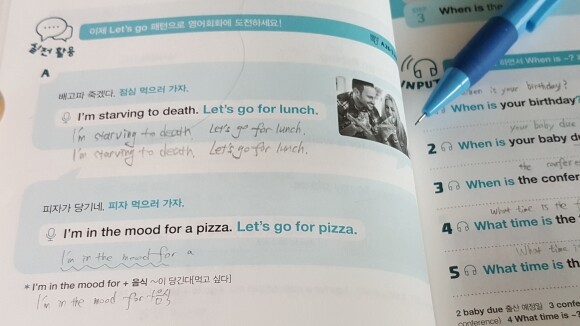 이제 Let's go 패턴으로 영어회화에 도전하세요!
실전 활용
A
배고파 죽겠다. 점심 먹으러 가자.
I'm starving to death. Let's go for lunch.
I'm starving to death. Let's go for lunch.
I'm starving to death. Let's go for lunch.
피자가 당기네. 피자 먹으러 가자.
I'm in the mood for a pizza. Let's go for pizza.
I'm in the mood for a
* I'm in the mood for + 음식 ~이 당긴다[먹고 싶다]
I'm in the mood for 음식
STEP
3
When is the
INPUT
하면서 When is ~?
When is your birthday?
When is your birthday?
your baby due
2 When is your baby du
the confere
3 When is the confer
What time is the
4 What time is the
What time is
5 What time is th
2 baby due 출산 예정일 3 confe
conference) 4 What time is ~?